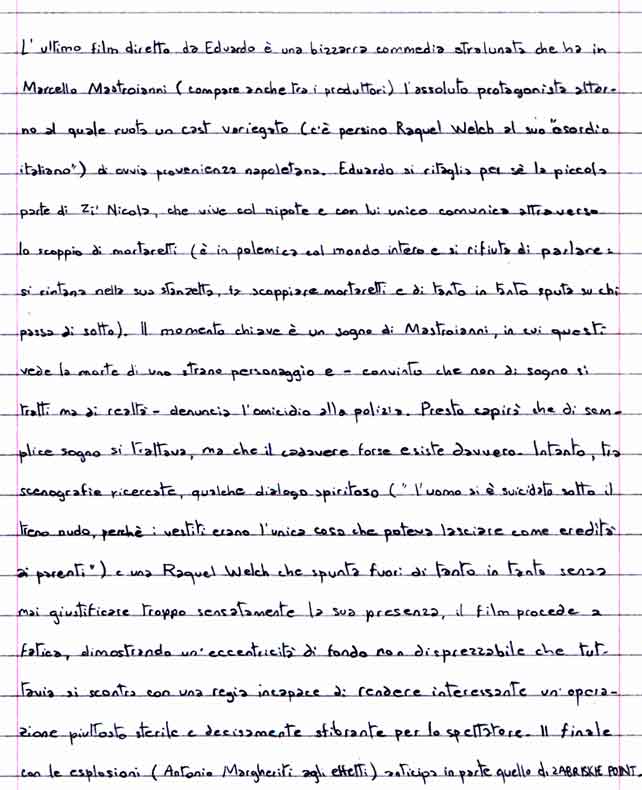 L'ultimo film diretto da Eduardo è una bizzarra commedia stralunata che ha in
Marcello Mastroianni (compare anche tra i produttori) l'assoluto protagonista attor-
no al quale ruota un cast variegato (c'è persino Raquel Welch al suo "esordio
italiano") di ovvia provenienza napoletana. Eduardo si ritaglia per sè la piccola
parte di Zi' Nicola, che vive col nipote e con lui unico comunica attraverso
lo scoppio di mortaretti (è in polemica col mondo intero e si rifiuta di parlare:
si rintana nella sua stanzetta, fa scoppiare mortaretti e di tanto in tanto sputa su chi
passa di sotto). Il momento chiave è un sogno di Mastroianni, in cui questi
vede la morte di uno strano personaggio e - convinto che non di sogno si
tratti ma di realtà - denuncia l'omicidio alla polizia. Presto capirà che di sem-
plice sogno si trattava, ma che il cadavere forse esiste davvero. Intanto, tra
scenografie ricercate, qualche dialogo spiritoso ("l'uomo si è suicidato sotto il
treno nudo, perchè i vestiti erano l'unica cosa che poteva lasciare come eredità
ai parenti") e una Raquel Welch che spunta fuori di tanto in tanto senza
mai giustificare troppo sensatamente la sua presenza, il film procede a
fatica, dimostrando un'eccentricità di fondo non disprezzabile che tut-
tavia si scontra con una regia incapace di rendere interessante un'opera-
zione piuttosto sterile e decisamente sfibrante per lo spettatore. Il finale
con le esplosioni (Antonio Margheriti agli effetti) anticipa in parte quello di ZABRISKIE POINT.